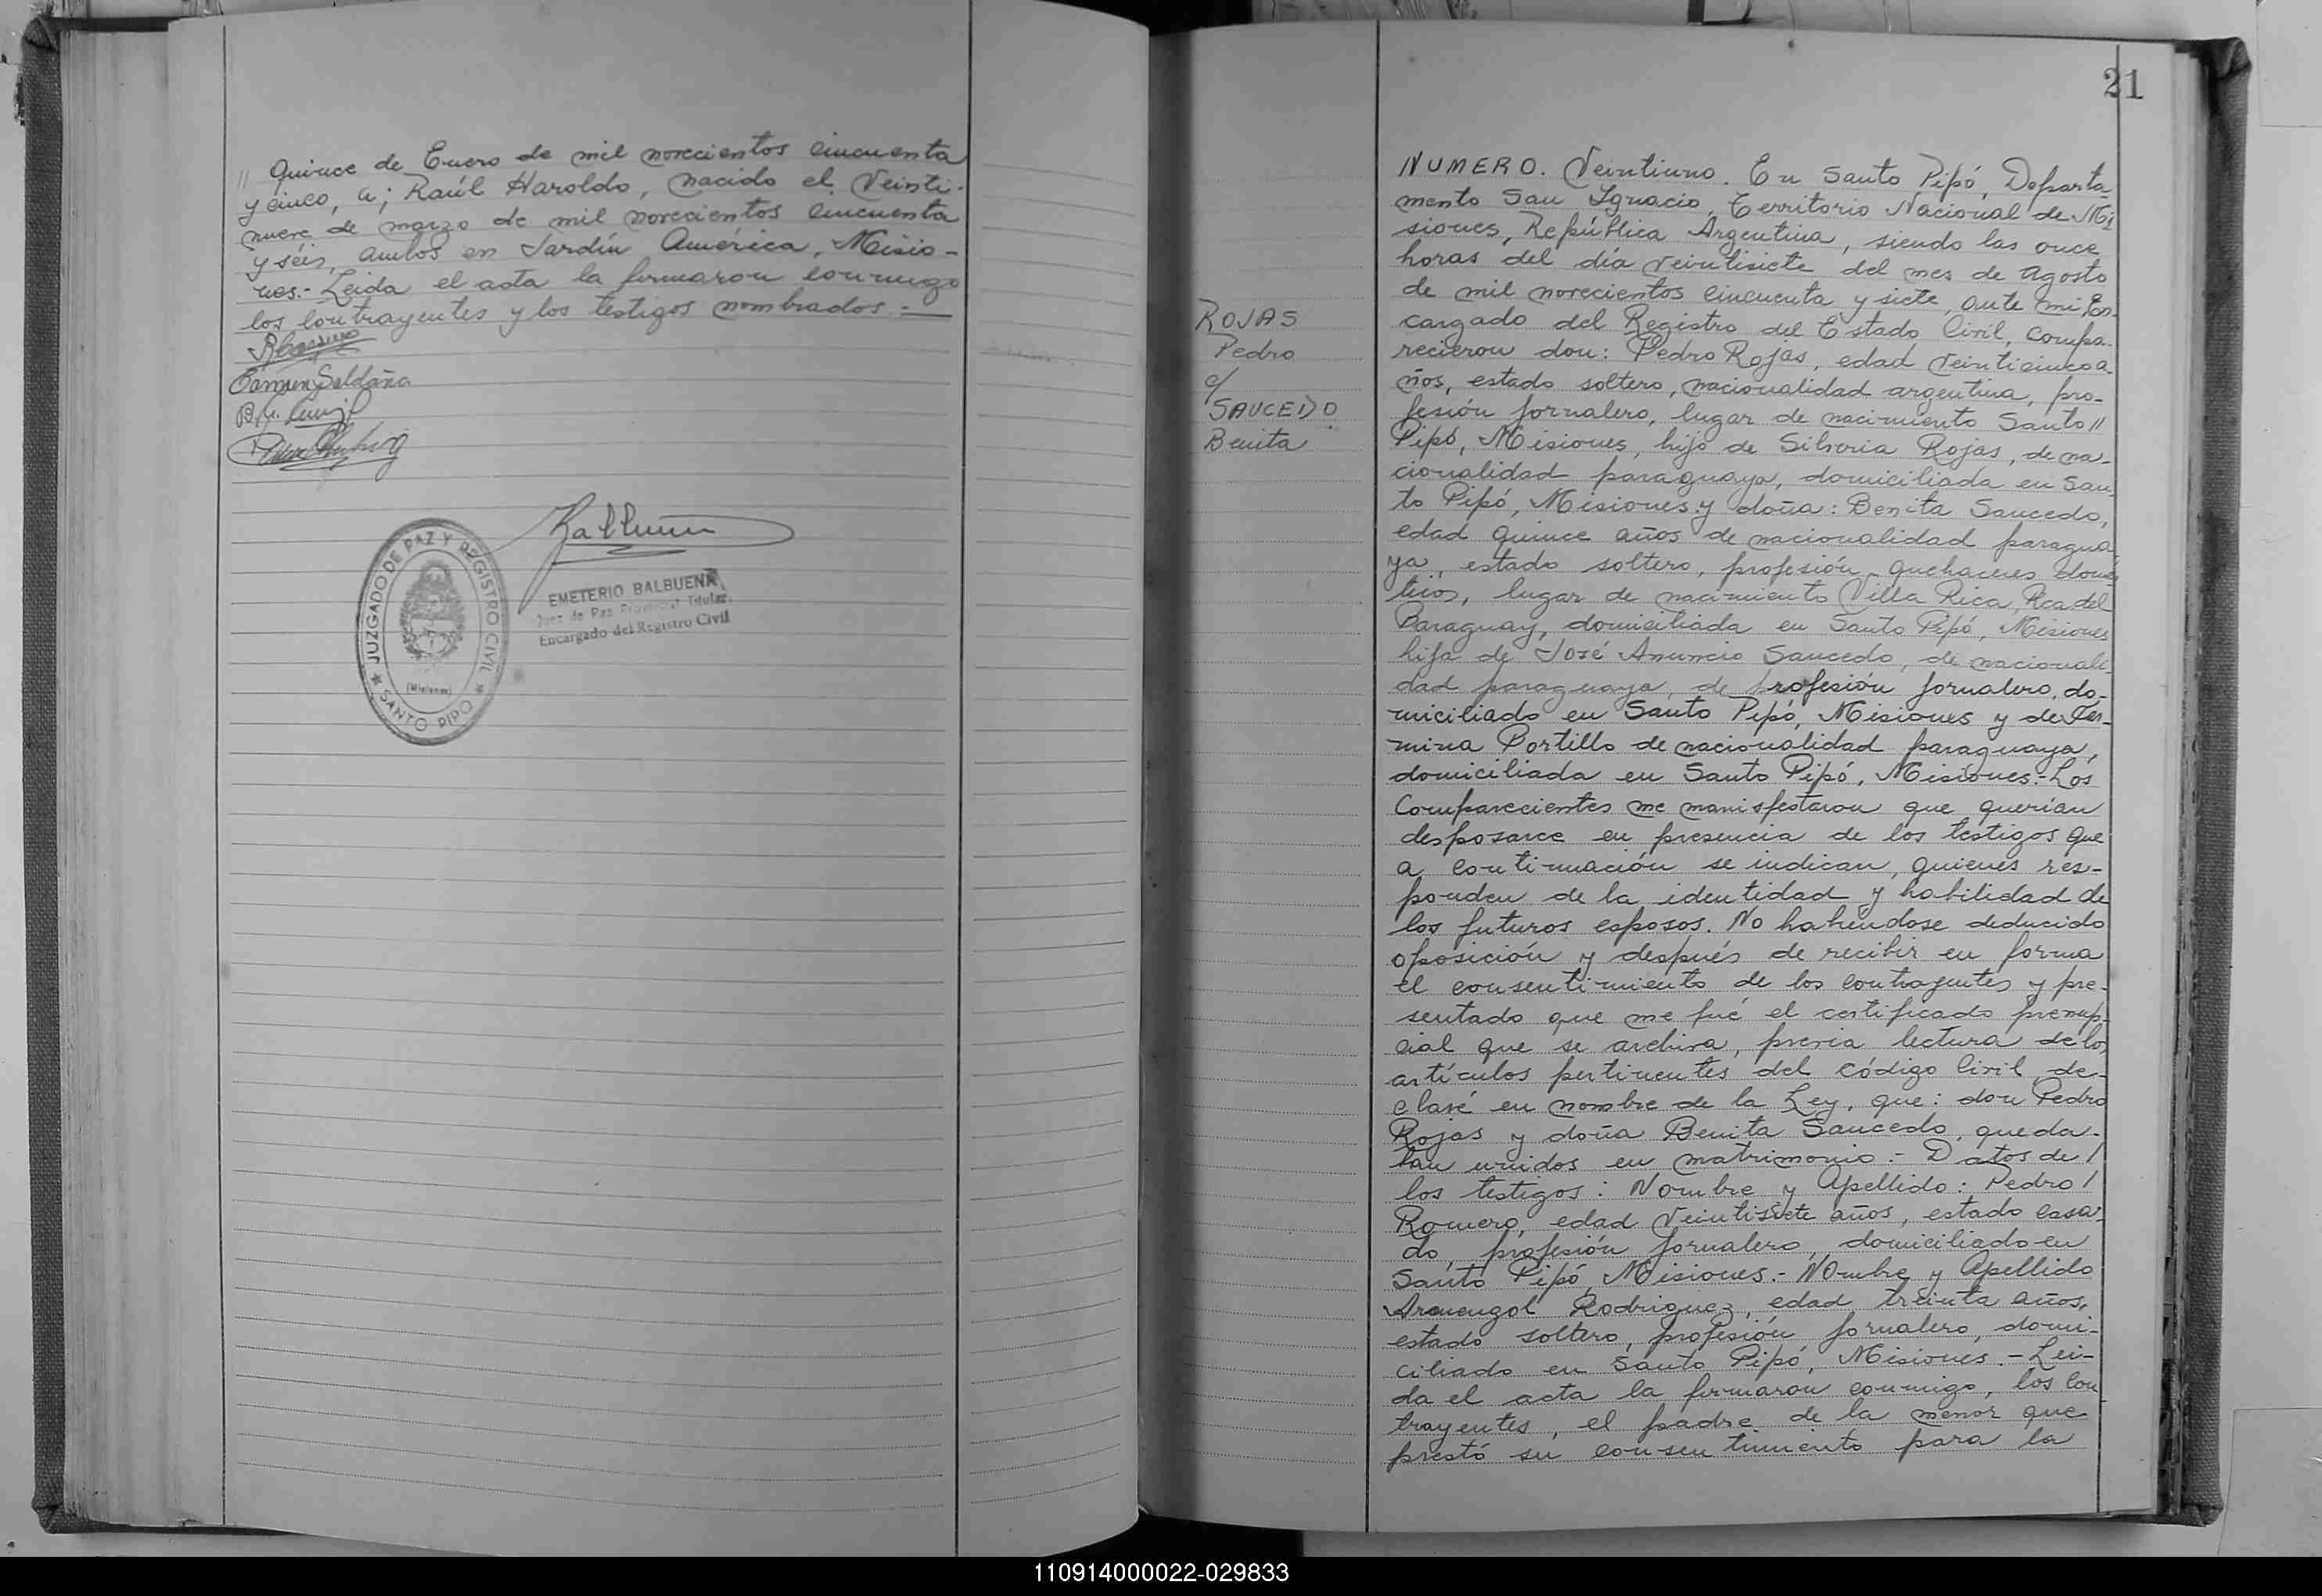 // Quince de Enero de mil novecientos cincuenta
y cinco, u; Raúl Haroldo, nacido el Veinti-
nueve de marzo de mil novecientos cincuenta
y séis, ambos en Jardín América, Misio-
nes.- Leida el acta la firmaron conmigo
los contrayentes y los testigos nombrados.-
Carmen Saldaña
JUZGADO DE PAZ Y REGISTRO CIVIL
SANTO PIPO
(Misiones)
EMETERIO BALBUENA
Juez de Paz Provincial Titular
Encargado del Registro Civil
21
ROJAS
Pedro
c/
SAUCEDO
Benita
NUMERO. Veintiuno. En Santo Pipó, Departa
mento San Ignacio, Territorio Nacional de Mi
siones, República Argentina, siendo las once
horas del día veintisiete del mes de Agosto
de mil novecientos cincuenta y siete, ante mi En-
cargado del Registro del Estado Civil, compa-
recieron don: Pedro Rojas, edad veinticinco a-
ños, estado soltero, nacionalidad argentina, pro-
fesión jornalero, lugar de nacimiento Santo //
Pipó, Misiones, hijo de Silveria Rojas, de na-
cionalidad paraguaya, domiciliada en San-
to Pipó, Misiones y doña: Benita Saucedo,
edad quince años de nacionalidad paragua-
ya, estado soltero, profesión quehaceres domés
ticos, lugar de nacimiento Villa Rica, Rca del
Paraguay, domiciliada en Santo Pipó, Misiones
hija de José Anuncio Saucedo, de nacionali
dad paraguaya, de profesión jornalero, do-
miciliado en Santo Pipó, Misiones y de Fer-
mina Portillo de nacionalidad paraguaya,
domiciliada en Santo Pipó, Misiones.- Los
comparecientes me manisfestaron que querían
desposarce en presencia de los testigos que
a continuación se indican, quienes res-
ponden de la identidad y habilidad de
los futuros esposos. No habiendose deducido
oposición y después de recibir en forma
el consentimiento de los contrayentes y pre-
sentado que me fué el certificado prenup-
cial que se archiva, previa lectura de los
artículos pertinentes del código Civil, de-
claré en nombre de la Ley, que: don Pedro
Rojas y doña Benita Saucedo, queda-
ban unidos en matrimonio.- Datos de /
los testigos: Nombre y Apellido: Pedro /
Romero, edad Veintisiete años, estado casa-
do, profesión jornalero, domiciliado en
Santo Pipó, Misiones.- Nombre y Apellido
Armengol Rodriguez, edad treinta años,
estado soltero, profesión jornalero, domi-
ciliado en Santo Pipó, Misiones.- Lei-
da el acta la firmaron conmigo, los con
trayentes, el padre de la menor que
prestó su consentimiento para la
110914000022-029833